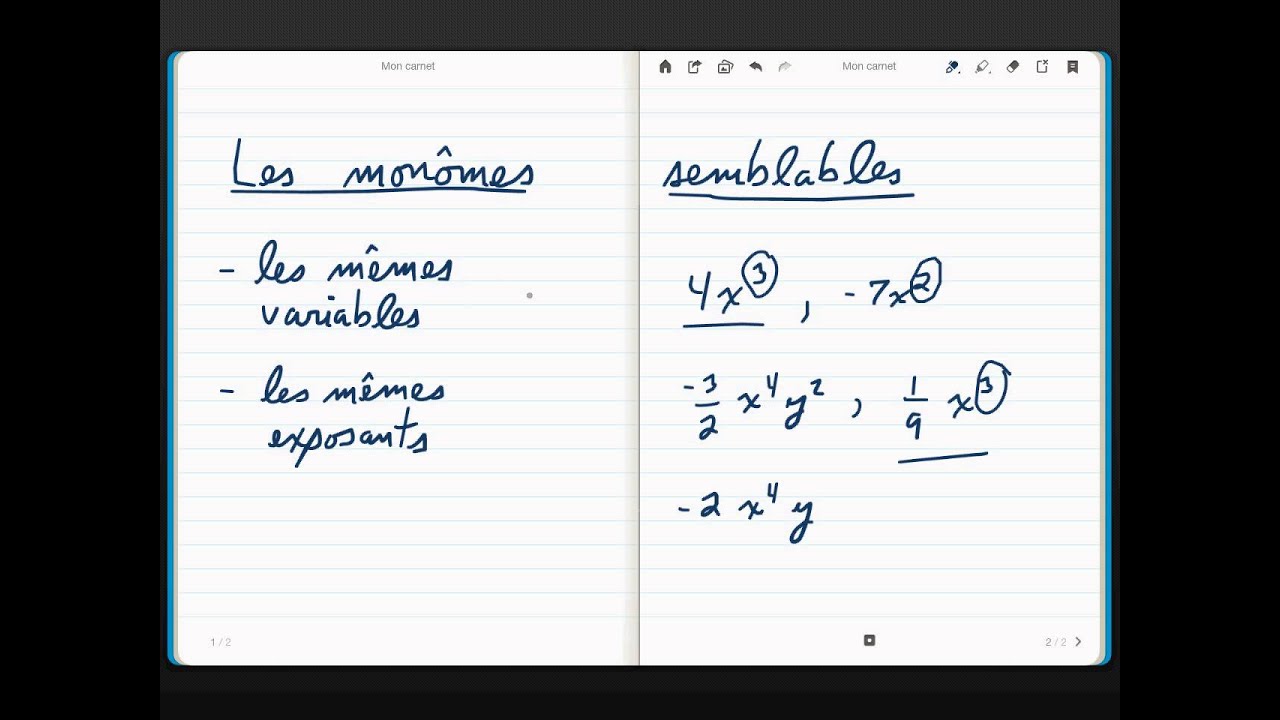 Mon carnet
Les monômes
- les mêmes
variables
- les mêmes
exposants
1 / 2
Mon carnet
semblables
4x³ , -7x²
-3/2 x⁴y² , 1/9 x³
-2 x⁴y
2 / 2